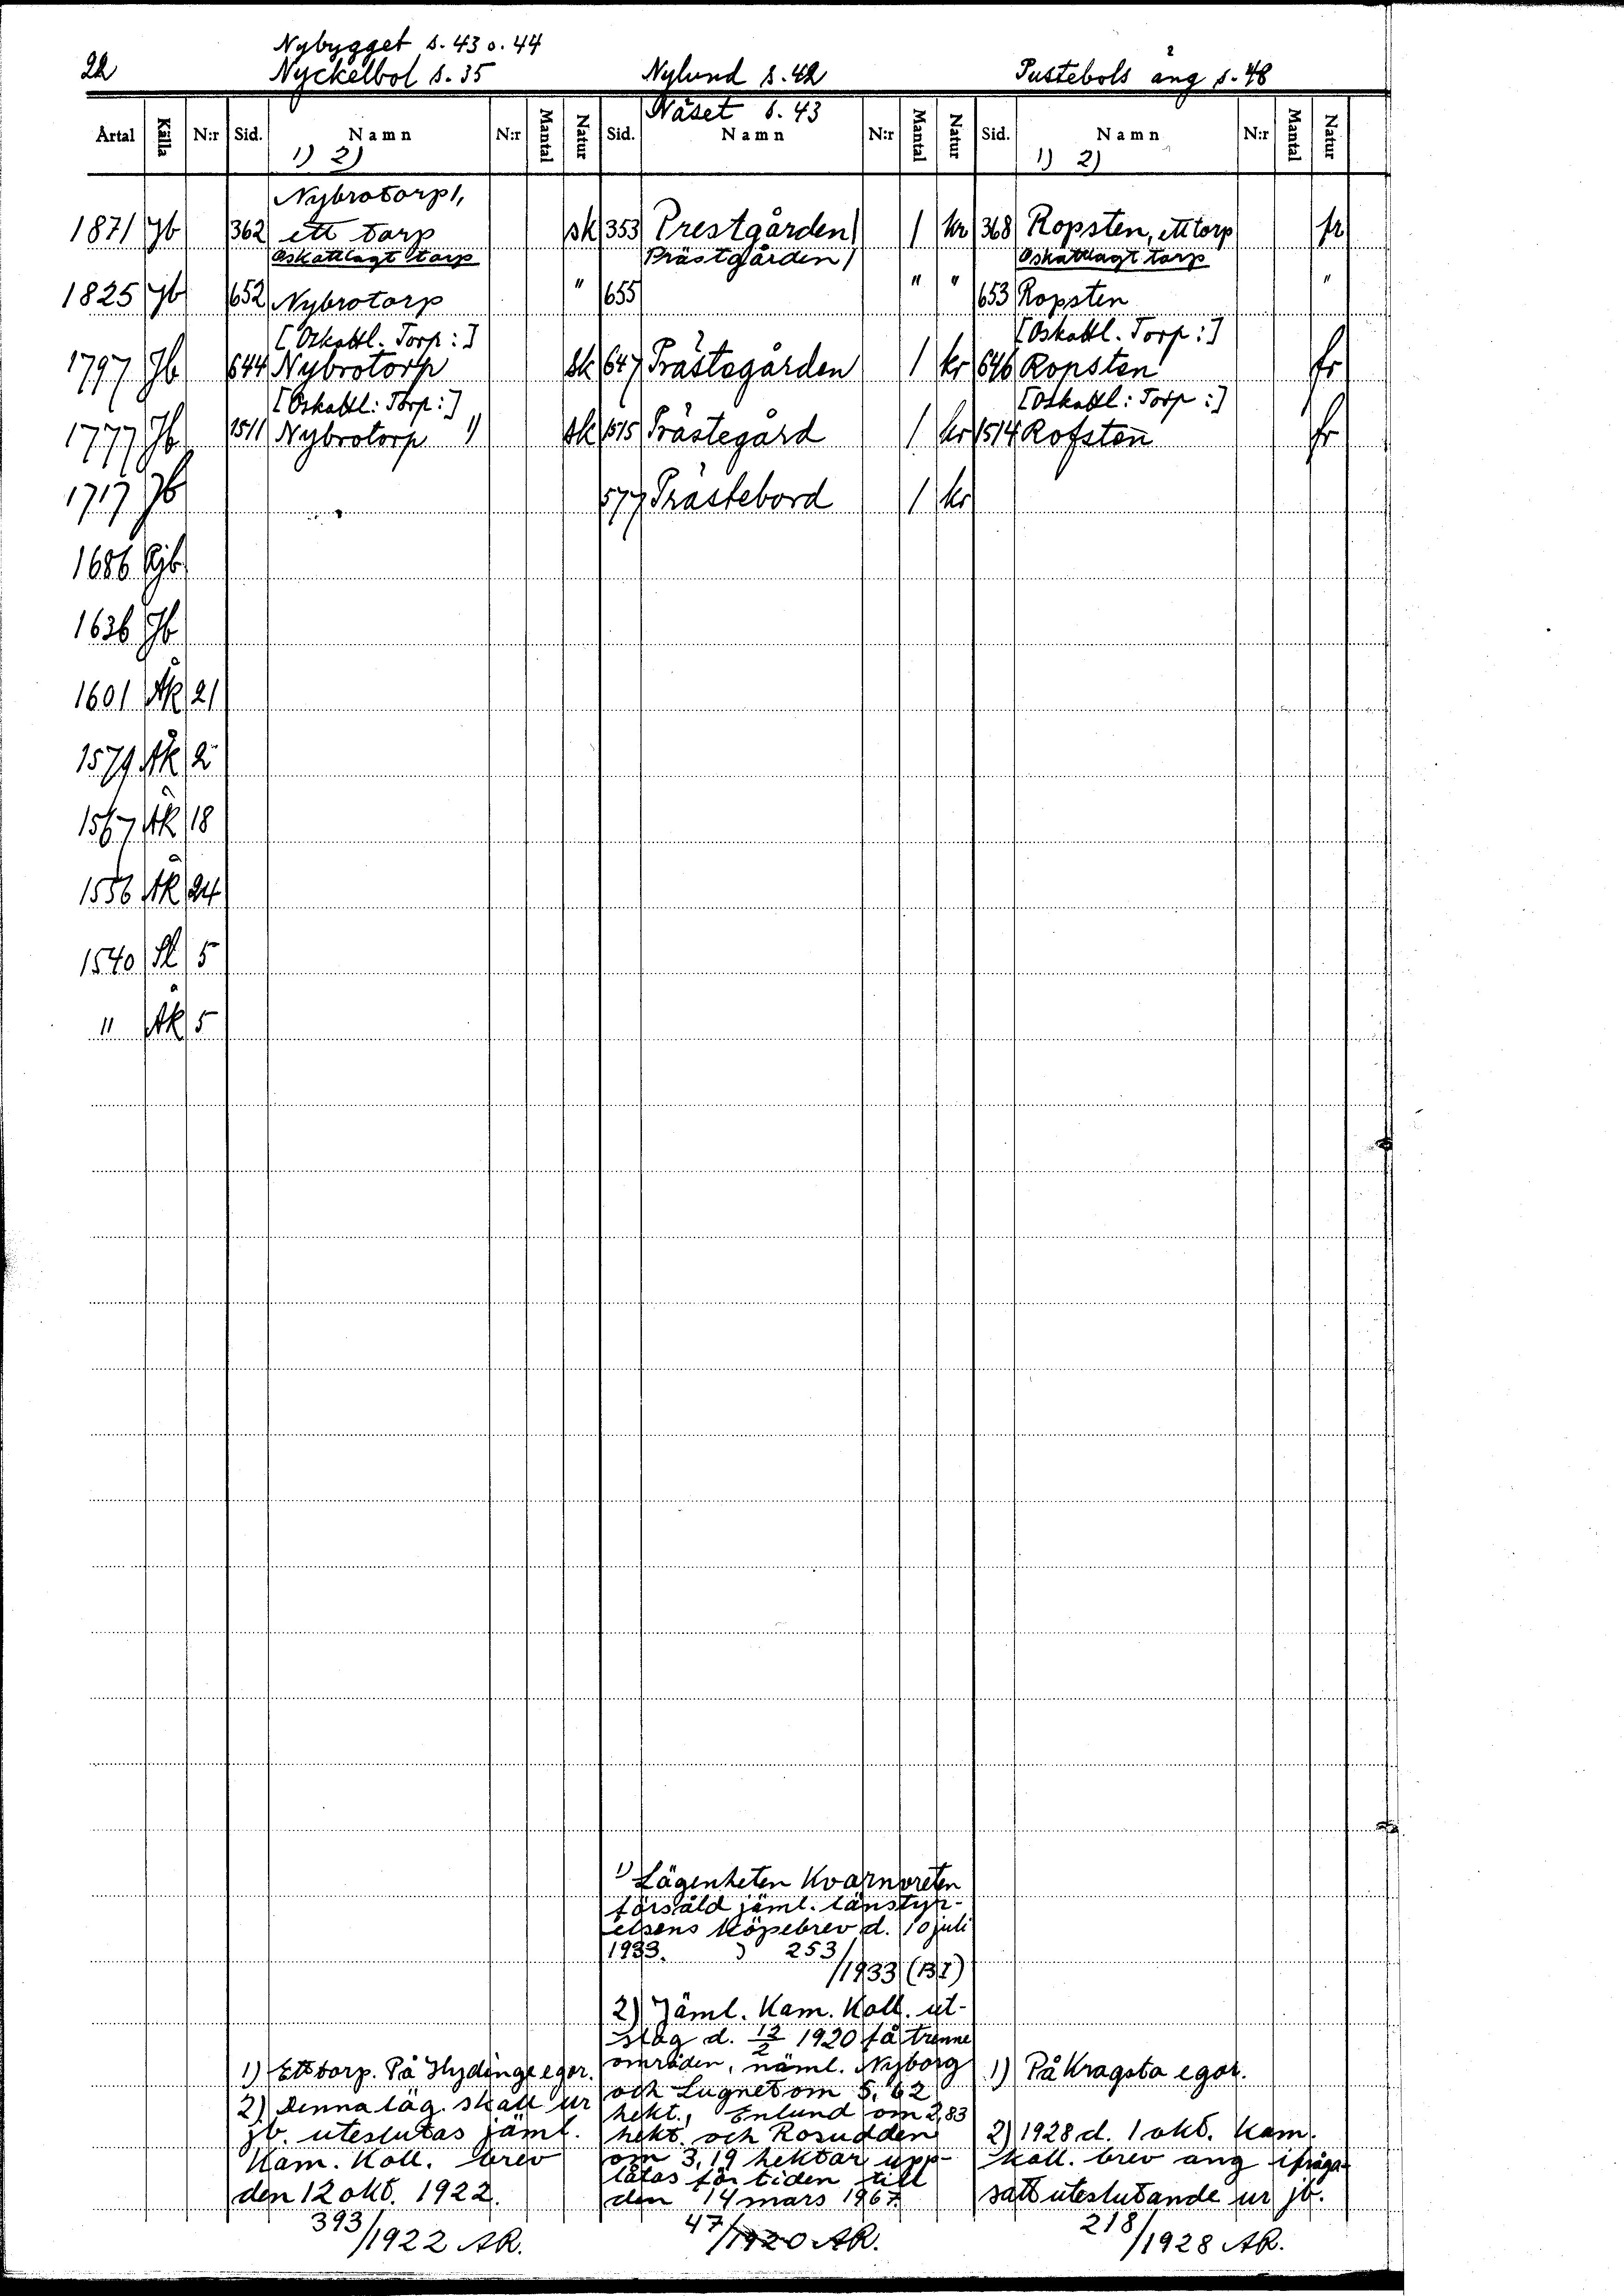 22
Nybygget s. 43 o. 44
Nyckelbol s. 35
Nylund s. 42
Näset s. 43
Pustebols äng s. 48
Årtal Källa N:r Sid. Namn N:r Mantal Natur Sid. Namn N:r Mantal Natur Sid. Namn N:r Mantal Natur
1) 2) 1) 2)
Nybrotorp 1,
1871 Jb 362 ett torp sk 353 Prestgården 1 kr 368 Ropsten, ett torp fr
Oskattlagt torp Prästgården Oskattlagt torp
1825 Jb 652 Nybrotorp " 655 " " 653 Ropsten "
[Oskattl. Torp:] [Oskattl. Torp:]
1797 Jb 644 Nybrotorp sk 647 Prästegården 1 kr 646 Ropsten fr
[Oskattl: Torp:] [Oskattl: Torp:]
1777 Jb 1511 Nybrotorp 1) sk 1515 Prästegård 1 kr 1514 Rofsten fr
1717 Jb 577 Prästebord 1 kr
1686 Rjb
1636 Jb
1601 Åk 21
1579 Åk 2
1567 Åk 18
1556 Åk 24
1540 Sl 5
" Åk 5
1) Ett torp. På Hydinge egor.
2) Denna läg. skall ur
jb. uteslutas jäml.
Kam. Koll. brev
den 12 okt. 1922.
393/1922 AK.
1) Lägenheten Kvarnvreten
försåld jäml. länstyr-
elsens köpebrev d. 10 juli
1933. 253/1933 (BI)
2) Jäml. Kam. Koll. ut-
slag d. 12/2 1920 få trenne
områden, näml. Nyborg
och Lugnet om 5,62
hekt., Enlund om 2,83
hekt. och Rosudden
om 3,19 hektar upp-
låtas för tiden till
den 14 mars 1967.
47/1920 AK.
1) På Kragsta egor.
2) 1928 d. 1 okt. Kam.
koll. brev ang ifråga-
satt uteslutande ur jb.
218/1928 AK.